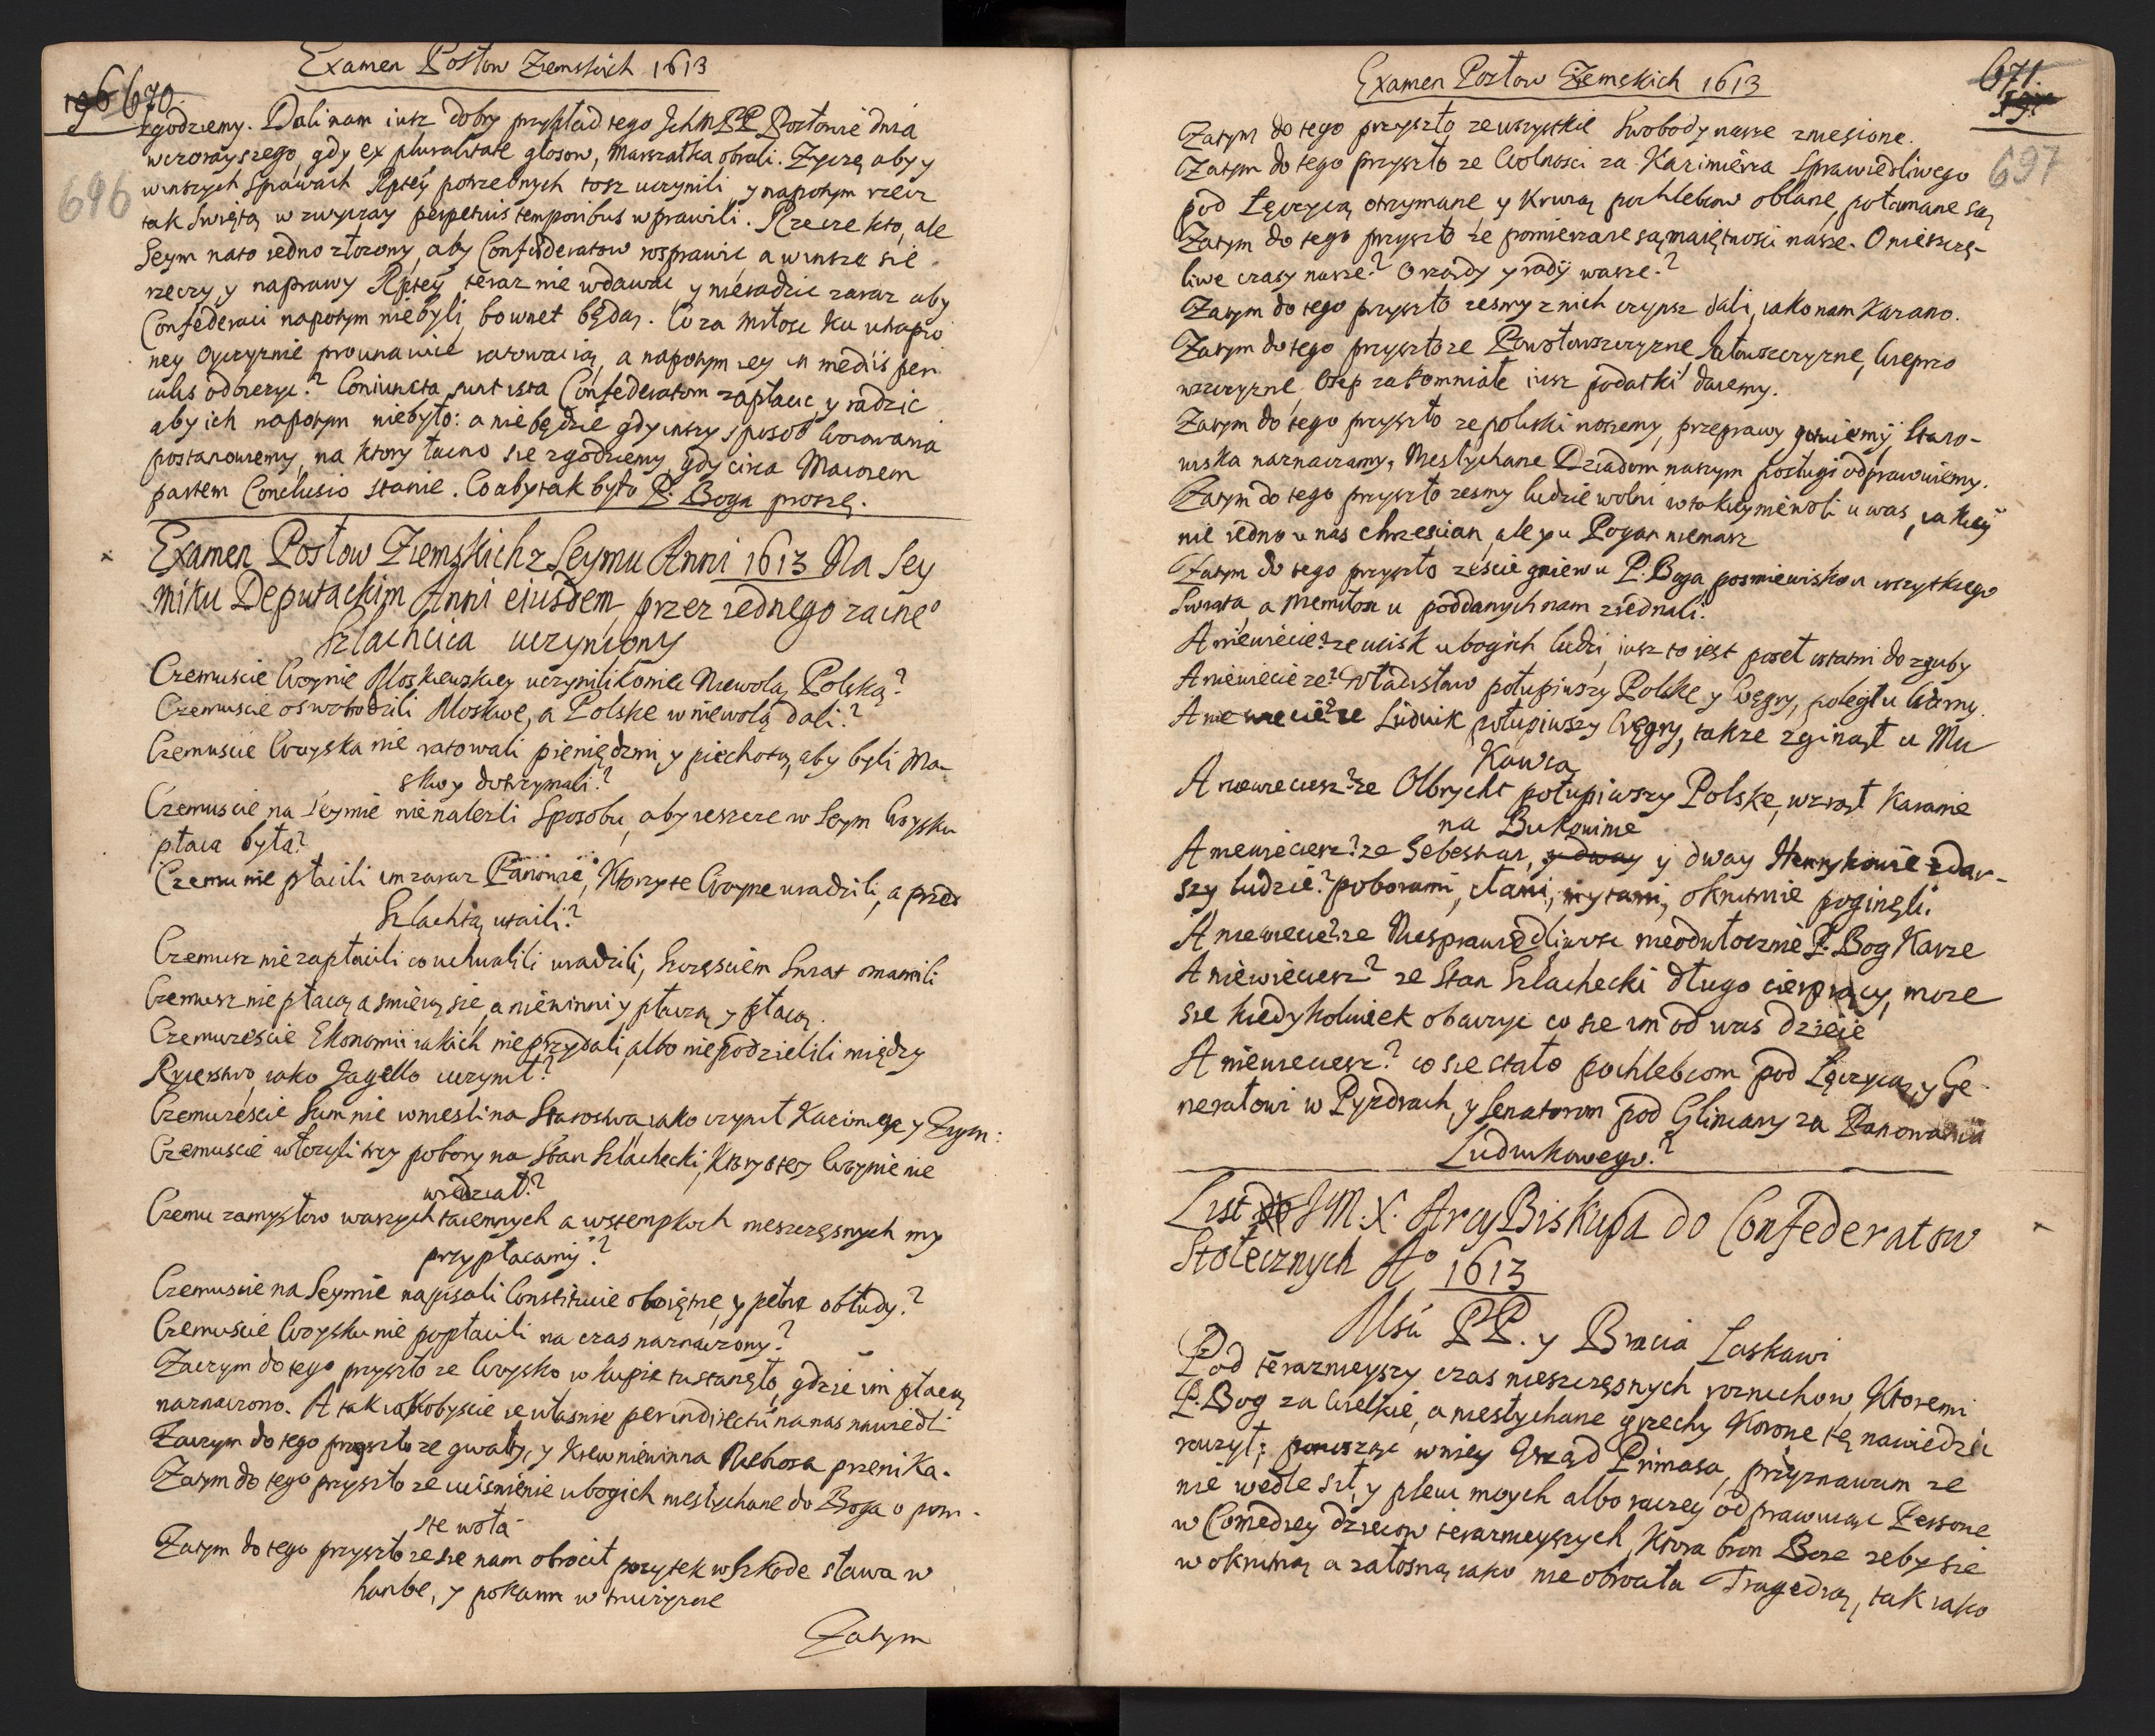 Examen Posłow Ziemskich 1613
196 670.
696
zgodziemy. Dali nam iusz dobry przykład tego Ich M PP Posłowie dnia
wczorayszego, gdy ex pluralitate głosow, Marszałka obrali. Zyczę aby y
winszych sprawach Rptey potrzebnych tosz uczynili y napotym rzecz
tak swiętą w zwyczay perpetuis temporibus wprawili. Rzecze kto, ale
Seym nato iedno złozony, aby Confederatow rosprawic, a w insze sie
rzeczy, y naprawy Rptey teraz nie wdawac y nieradzic zaraz aby
Confederaci napotym niebyli, bo wnet będą. Co za miłosc ku utrapio
ney oyczyznie prounawic ratowac ią, a napotym iey in mediis peri
culis odbiezyc? Coniuncta sunt ista Confederatom zapłacic, y radzic
aby ich napotym niebyło: a niebędzie gdy inszy sposob woiowania
postanowiemy, na ktory łacno sie zgodziemy, gdy circa Maiorem
partem Conclusio stanie. Co aby tak było P. Boga proszę.
Examen Posłow Ziemskich z Seymu Anni 1613 Na Sey
miku Deputackim Anni eiusdem, przez iednego zacneo
Szlachcica uczyniony
Czemuscie Woynie Moskiewskiey uczynili koniec Niewolą Polską?
Czemuscie oswobodzili Moskwę, a Polske w niewolą dali?
Czemuscie Woyska nie ratowali pieniędzmi, y piechotą, aby byli Mo-
skwy dotrzymali?
Czemuscie na Seymie nie nalezli Sposobu, aby ieszcze w Seym Woysku
płaca była?
Czemu nie płacili im zaraz Panowie, Ktorzy te Woyne uradzili, a przed
Szlachtą utaili?
Czemusz nie zapłacili co uchwalili uradzili, Szczęsciem Swiat omamili
Czemusz nie płacą a smieią się, a niewinni y płaczą y płacą.
Czemuzescie Ekonomii iakich nie przydali, albo nie podzielili między
Rycerstwo, iako Jagełło uczynił?
Czemuzescie Sum nie wniesli na Starostwa, iako czynił Kazimierz y Zygm:
Czemuscie włozyli trzy pobory na Stan Szlachecki, Ktory o tey Woynie nie
wiedział?
Czemu zamysłow waszych taiemnych a wstempkoch nieszczęsnych my
przypłacamy?
Czemuscie na Seymie napisali Constitucie oboiętne, y pełne obłudy?
Czemuscie Woysku nie popłacili na czas naznaczony?
Zaczym do tego przyszło ze Woysko w kupie tu stanęło, gdzie im płacą
naznaczono. A tak iakobyscie ie własnie per indirectu na nas nawiedli
Zaczym do tego przyszło ze gwałty, y Krew niewinna Niebiosa przenika.
Zatym do tego przyszło ze ucisnienie ubogich niesłychane do Boga o pom-
ste woła
Zatym do tego przyszło ze sie nam obrocił pozytek w Szkode sława w
hanbe, y pokarm w truciznę
Zatym
Examen Posłow Ziemskich 1613
671.
697
Zatym do tego przyszło, ze wszystkie Swobody nasze zniesione.
Zatym do tego przyszło ze Wolnosci za Kazimierza Sprawiedliwego
pod Łęczycą otrzymane y Krwią pochlebcow oblane, połamane są
Zatym do tego przyszło ze pomierzane są maiętnosci nasze. O nieszczę-
liwe czasy nasze? O rządy y rady wasze?
Zatym do tego przyszło zesmy z nich czynsz dali, iako nam Kazano.
Zatym do tego przyszło ze Powołowszczyzne, Jałowszczyzne, Wiepro
wszczyzne, Osep zakomniałe iusz podatki daiemy.
Zatym do tego przyszło ze poliski nosiemy, przeprawy gotuiemy, Stano-
wiska naznaczamy, Niesłychane Dziadom naszym posługi odprawuiemy.
Zatym do tego przyszło zesmy ludzie wolni w takiey niewoli u was, iakiey
nie iedno u nas chrzescian, ale y u Pogan niemasz
Zatym do tego przyszło zescie gniew u P. Boga, posmiewisko u wszytkiego
Swiata, a Niemiłosc u poddanych nam ziednali.
A niewiecie? ze ucisk ubogich ludzi, iusz to iest poseł ostatni do zguby
A niewiecie ze? Władisław połupiwszy Polske y Węgry, poległ u Warny.
A nie wiecie? ze Ludwik połupiwszy Węgry, takze zginął u Mu
Kawca
A niewieciesz? ze Olbrycht połupiwszy Polske, wziął Karanie
na Bukowinie
A niewieciesz? ze Sebestian, y dway Henrykowie zdar-
szy ludzie? poborami, cłami, mytami, okrutnie poginęli.
A niewiecie? ze Niesprawiedliwosc nieodwłocznie P. Bog Karze
A niewieciesz? ze Stan Szlachecki długo cierpiący, moze
sie kiedyzkolwiek obaczyc co sie im od was dzieie
A niewieciesz? co sie stało pochlebcom pod Łęczycą, y Ge-
nerałowi w Pyzdrach, y Senatorom pod Gliniany za Panowania
Ludwikowego?
List JM. X. Arcy Biskupa do Confederatow
Stołecznych Ao 1613
Msci PP. y Bracia Łaskawi
Pod terazniejszy czas nieszczęsnych rozruchow, Ktoremi
P. Bog za wielkie, a niesłychane grzechy Koronę tę nawiedzic
raczył; ponosząc w niey Urząd Primasa, przyznawam ze
nie wedle sił, y płci moych albo raczey odprawuiąc Personę
w Comediey dzieiow terazniejszych, Ktora bron Boze zeby sie
w okrutną a załosną iako nie obrociła Tragedią, tak iako